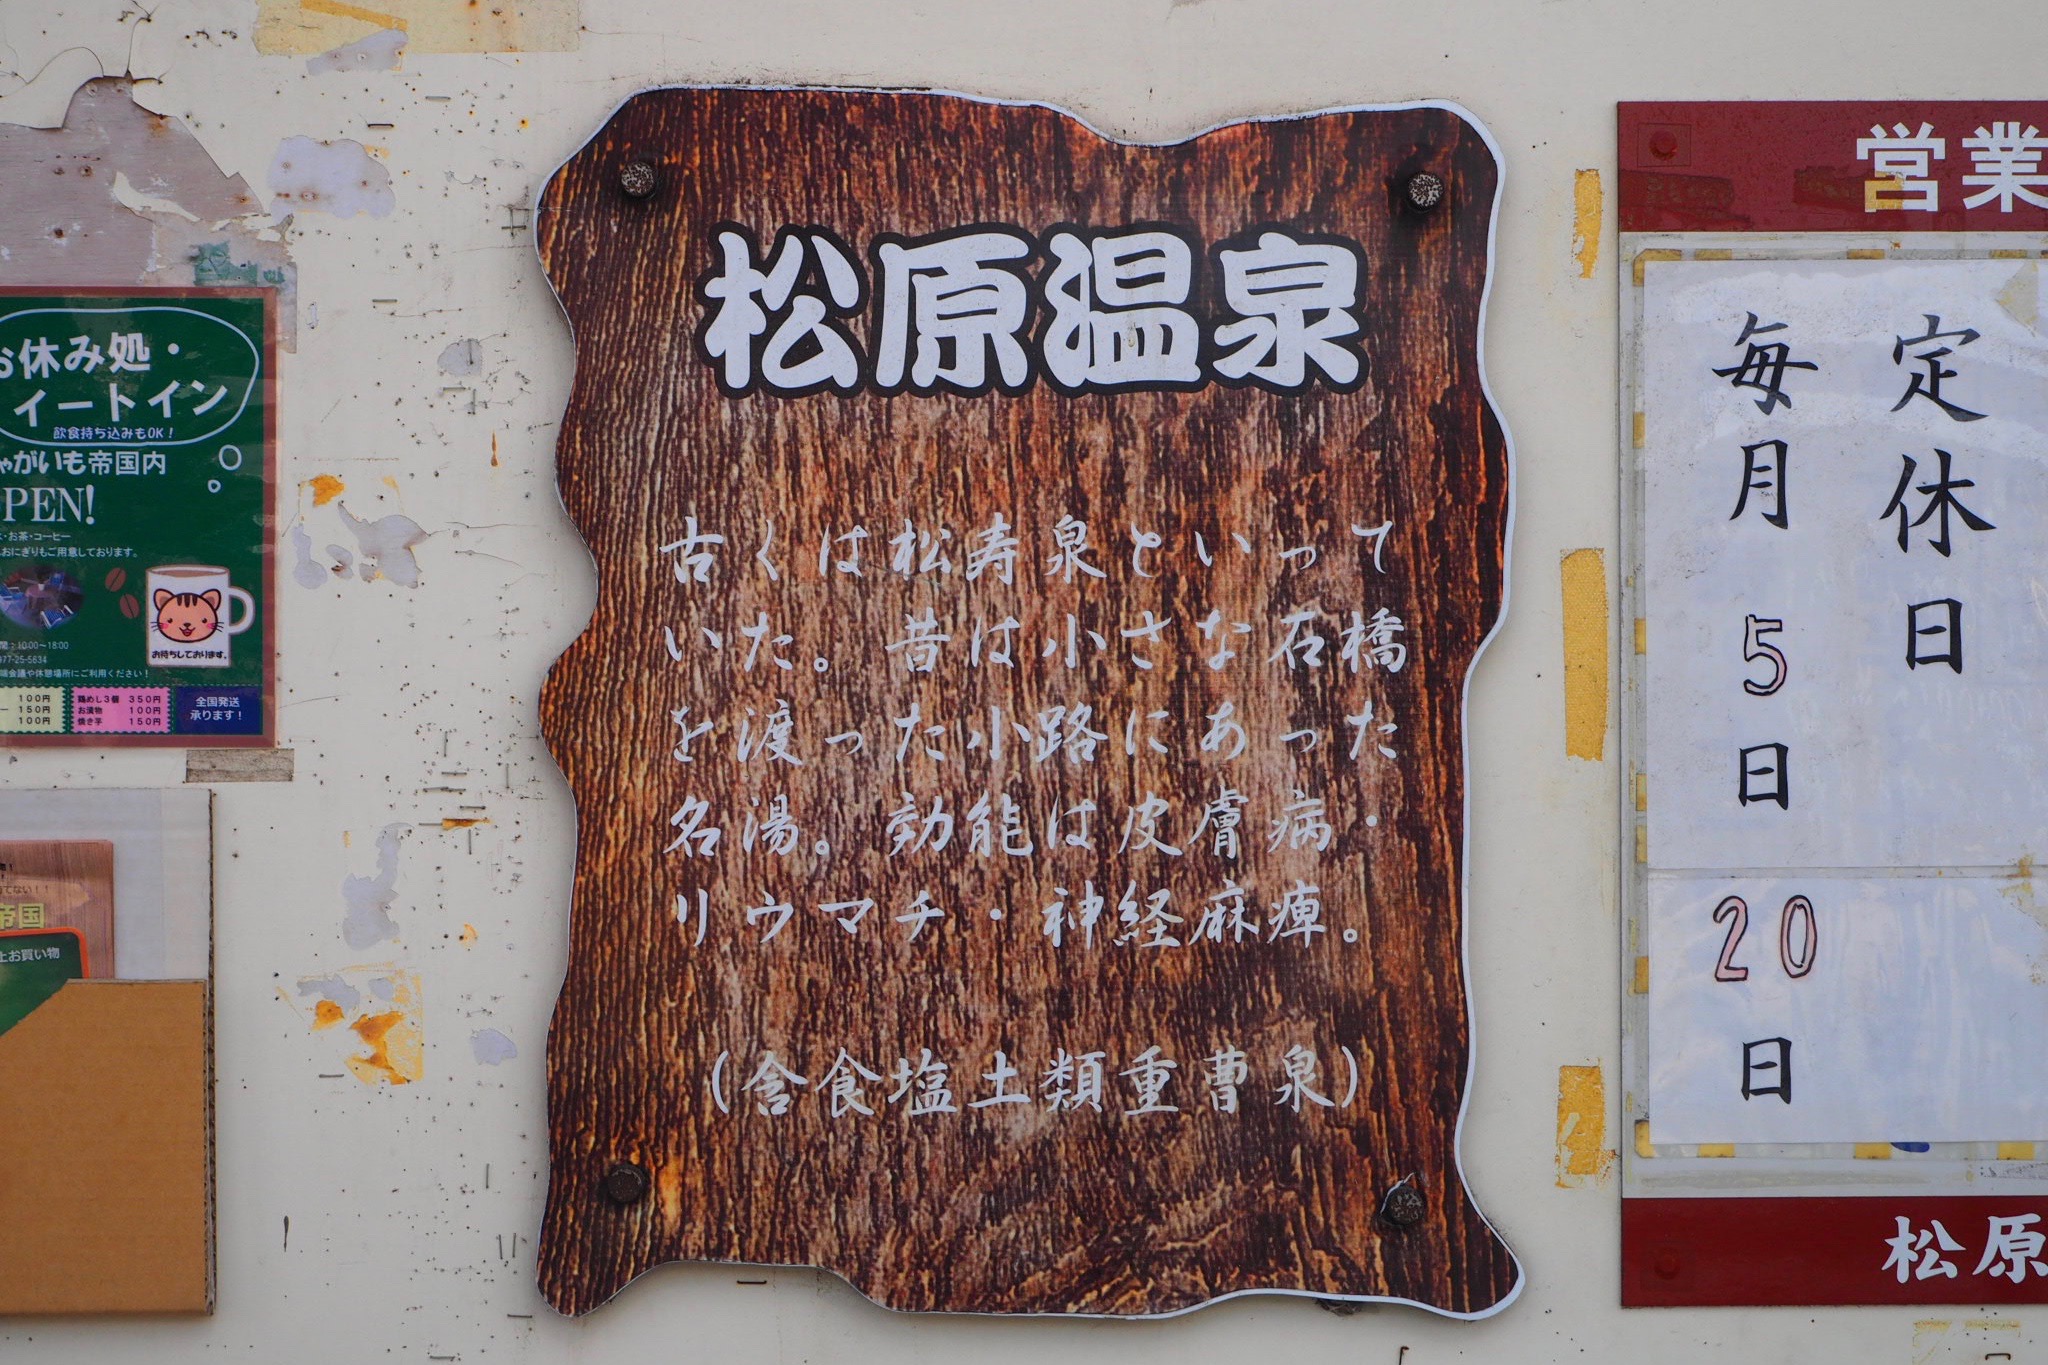 お休み処・
イートイン
飲食持ち込みもOK！
がいも帝国内
PEN!
・お茶・コーヒー
おにぎりもご用意しております。
お待ちしております。
：10:00〜18:00
977-25-5634
端会議や休憩場所にご利用ください！
100円
150円
100円
鶏めし3個 350円
お漬物 100円
焼き芋 150円
全国発送
承ります！
てない！！
帝国
お買い物
松原温泉
古くは松寿泉といって
いた。昔は小さな石橋
を渡った小路にあった
名湯。効能は皮膚病・
リウマチ・神経麻痺。
（含食塩土類重曹泉）
営業
定休日
毎月 5日
20日
松原